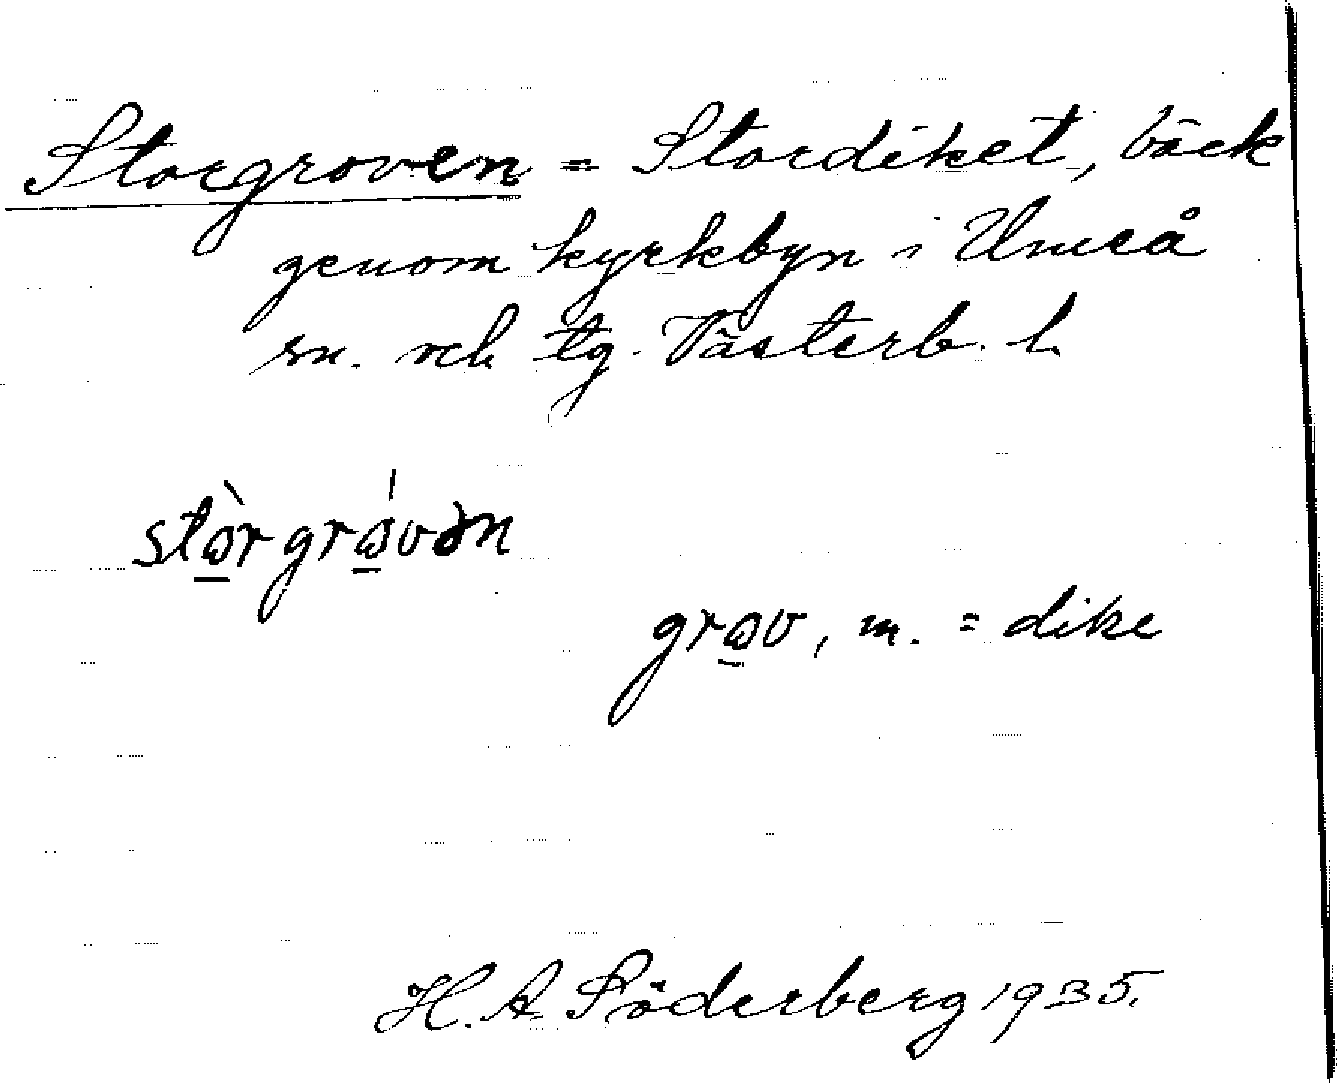 Storgroven = Stordiket, bäck
genom kyrkbyn i Umeå
sn. och tg. Västerb. l.
stò̱rgró̱vən
gro̱v, m. = dike
H. A. Söderberg 1935.